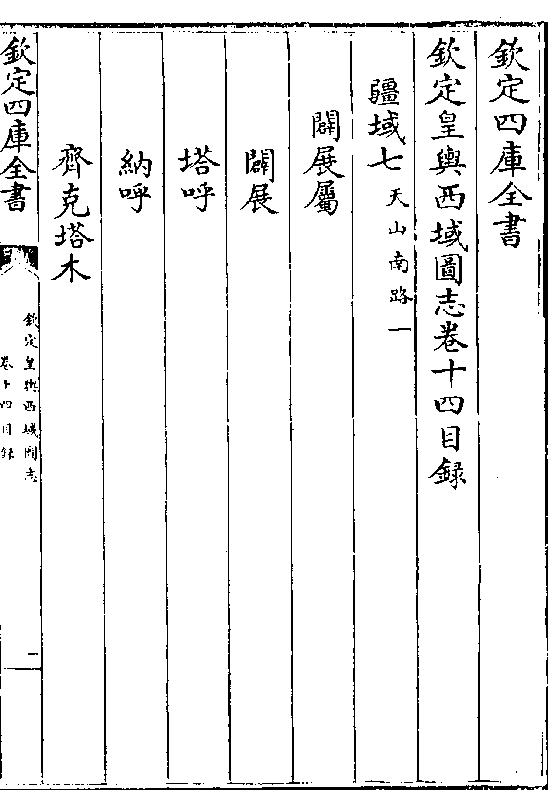 欽定四庫全書
欽定皇輿西域圖志卷十四目録
疆域七天山南路一
闢展屬
闢展
塔呼
納呼
齊克塔木
欽定四庫全書
欽定皇輿西域圖志
卷十四目録
一